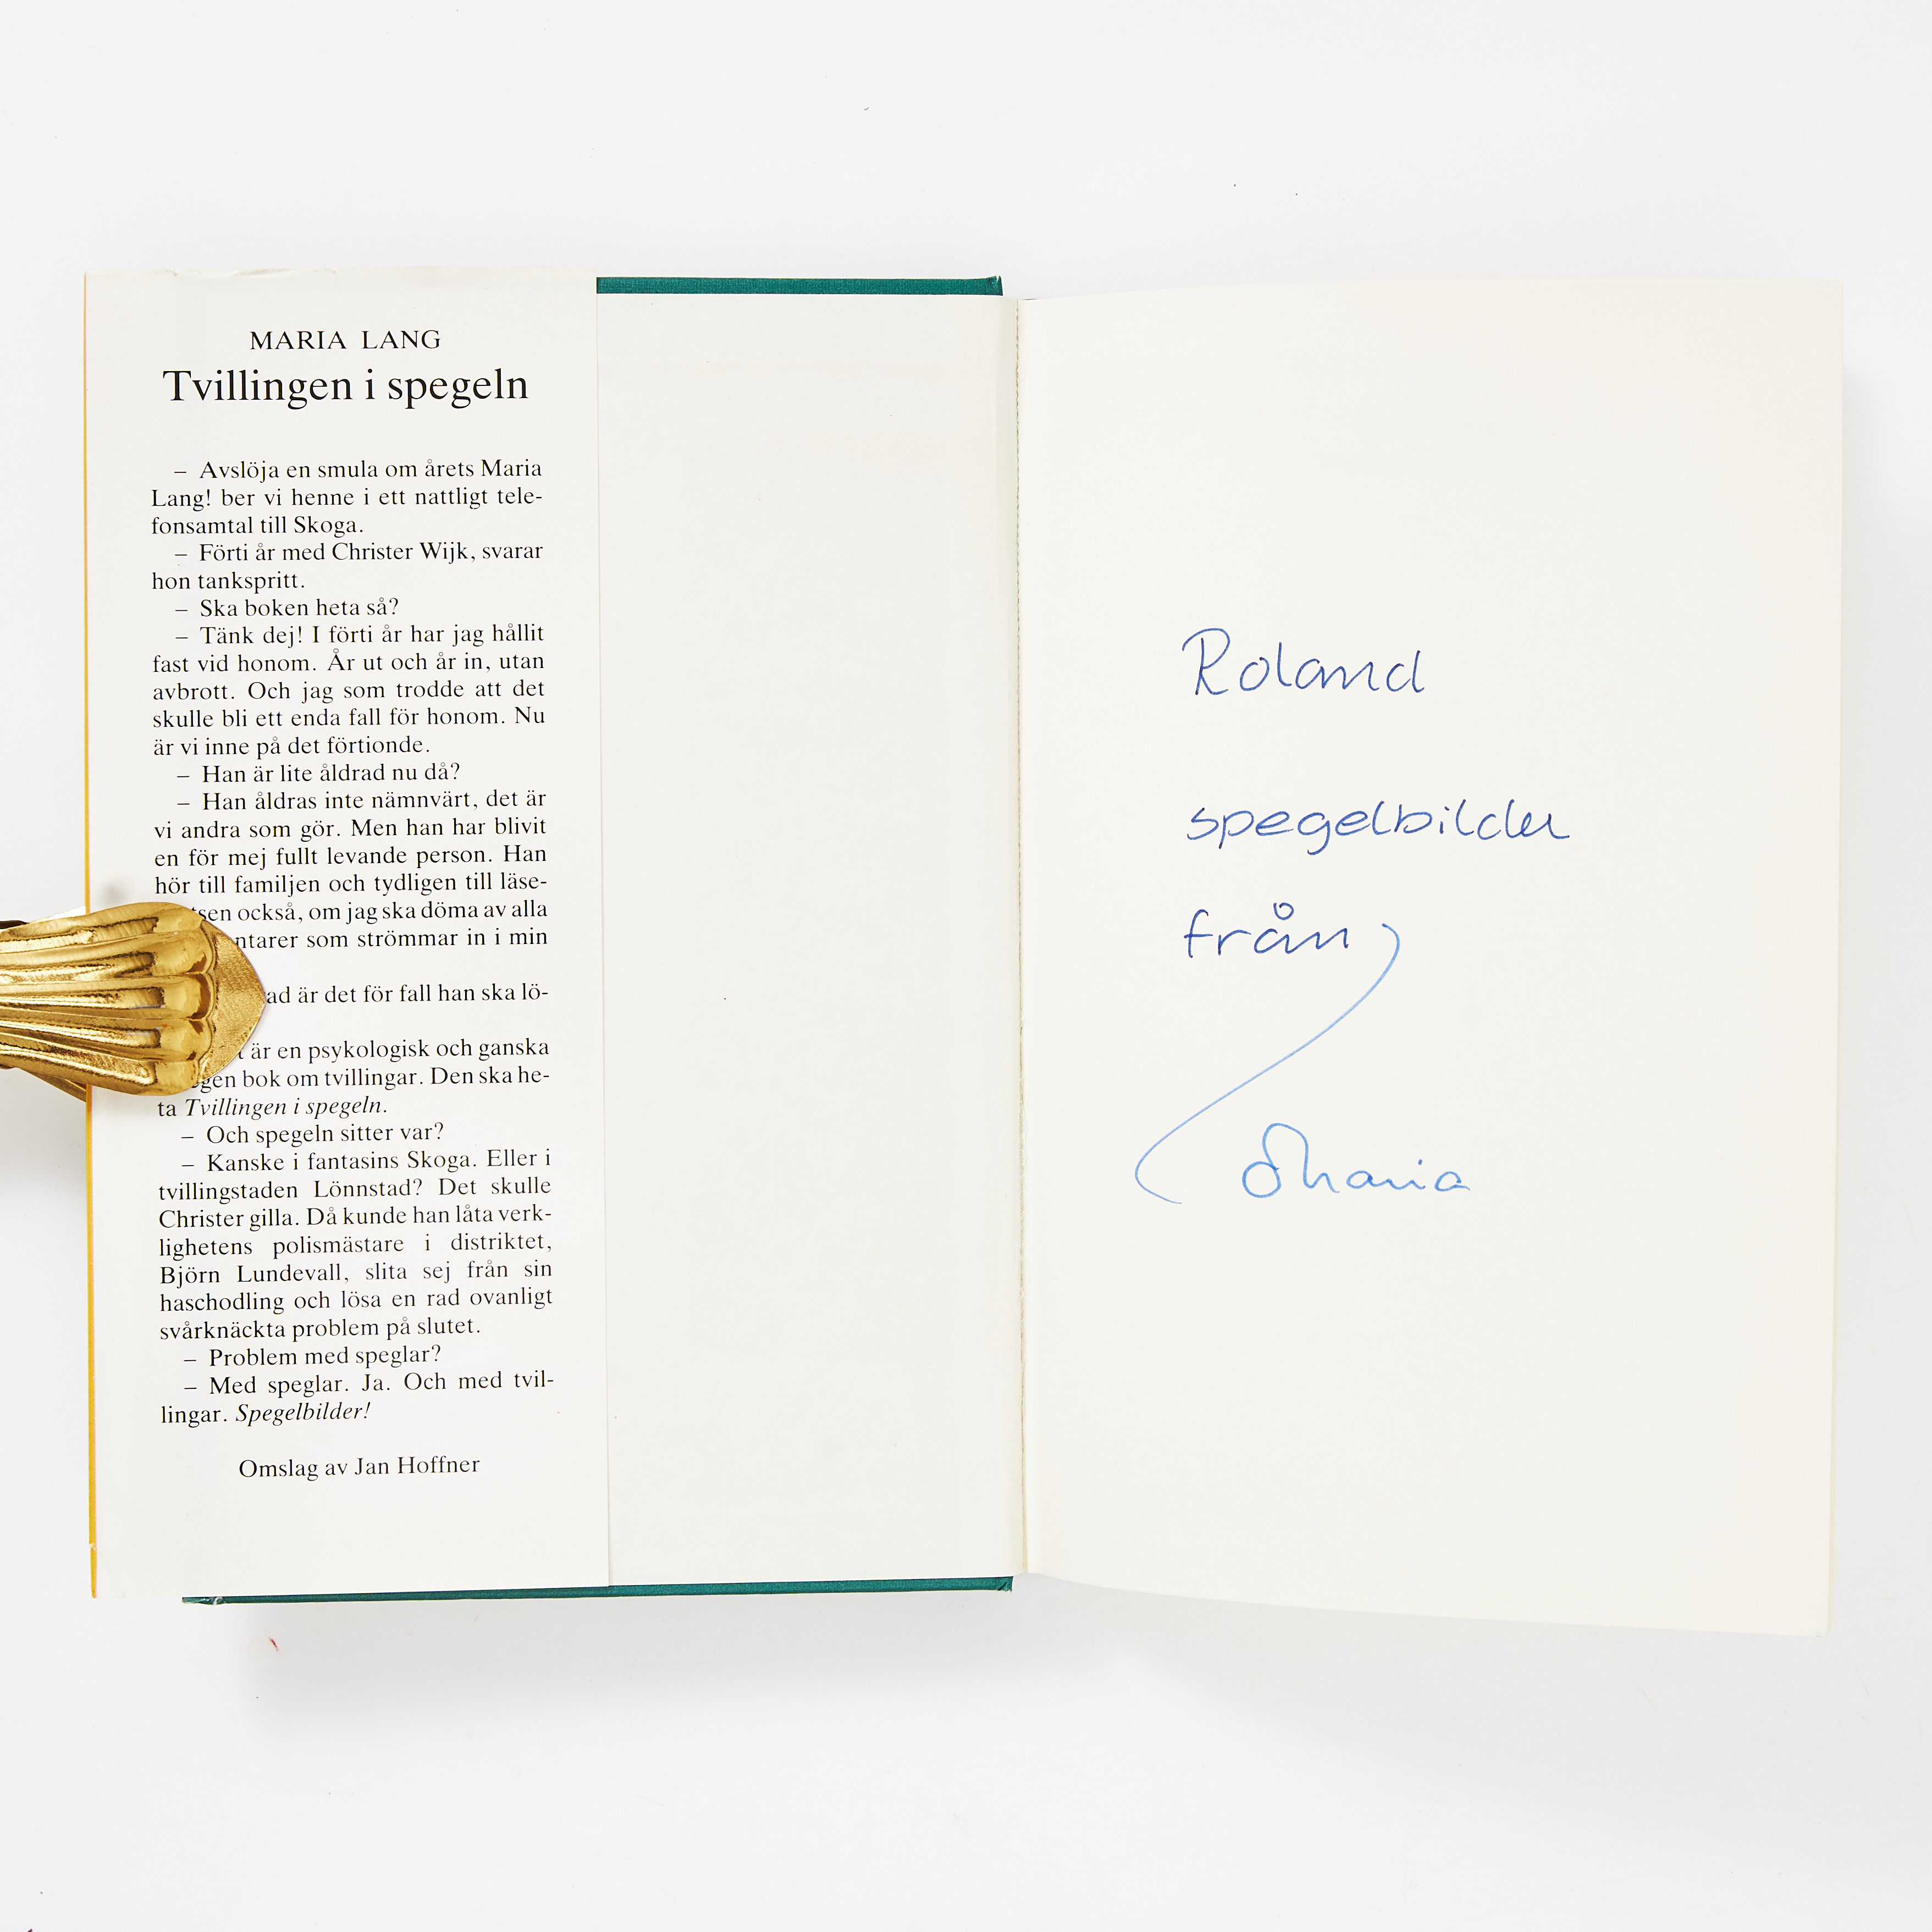 MARIA LANG
Tvillingen i spegeln
– Avslöja en smula om årets Maria
Lang! ber vi henne i ett nattligt tele-
fonsamtal till Skoga.
– Förti år med Christer Wijk, svarar
hon tankspritt.
– Ska boken heta så?
– Tänk dej! I förti år har jag hållit
fast vid honom. År ut och år in, utan
avbrott. Och jag som trodde att det
skulle bli ett enda fall för honom. Nu
är vi inne på det förtionde.
– Han är lite åldrad nu då?
– Han åldras inte nämnvärt, det är
vi andra som gör. Men han har blivit
en för mej fullt levande person. Han
hör till familjen och tydligen till läse-
också, om jag ska döma av alla
som strömmar in i min
är det för fall han ska lö-
är en psykologisk och ganska
bok om tvillingar. Den ska he-
ta Tvillingen i spegeln.
– Och spegeln sitter var?
– Kanske i fantasins Skoga. Eller i
tvillingstaden Lönnstad? Det skulle
Christer gilla. Då kunde han låta verk-
lighetens polismästare i distriktet,
Björn Lundevall, slita sej från sin
haschodling och lösa en rad ovanligt
svårknäckta problem på slutet.
– Problem med speglar?
– Med speglar. Ja. Och med tvil-
lingar. Spegelbilder!
Omslag av Jan Hoffner
Roland
spegelbilder
från
Maria